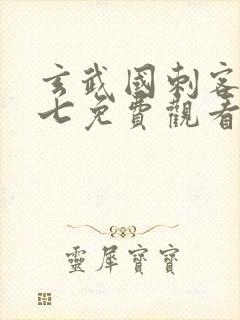 玄武國刺客
七免費觀看
靈犀寶寶